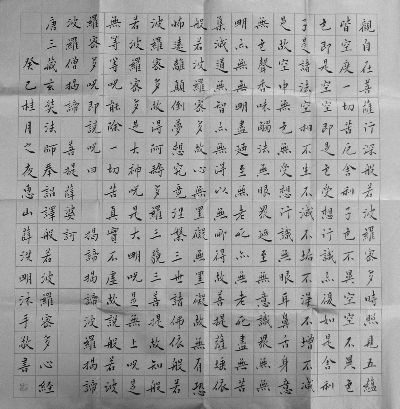 觀自在菩薩行深般若波羅蜜多時照見五蘊
皆空度一切苦厄舍利子色不異空空不異色
色即是空空即是色受想行識亦復如是舍利
子是諸法空相不生不滅不垢不淨不增不減
是故空中無色無受想行識無眼耳鼻舌身意
無色聲香味觸法無眼界乃至無意識界無無
明亦無無明盡乃至無老死亦無老死盡無苦
集滅道無智亦無得以無所得故菩提薩埵依
般若波羅蜜多故心無罣礙無罣礙故無有恐
怖遠離顛倒夢想究竟涅槃三世諸佛依般若
波羅蜜多故得阿耨多羅三藐三菩提故知般
若波羅蜜多是大神咒是大明咒是無上咒是
無等等咒能除一切苦真實不虛故說般若波
羅蜜多咒即說咒曰 揭諦揭諦波羅揭諦
波羅僧揭諦 菩提薩婆訶
唐三藏玄奘法師奉詔譯般若波羅蜜多心經
癸巳桂月之夜惠山薛洪明沐手敬書